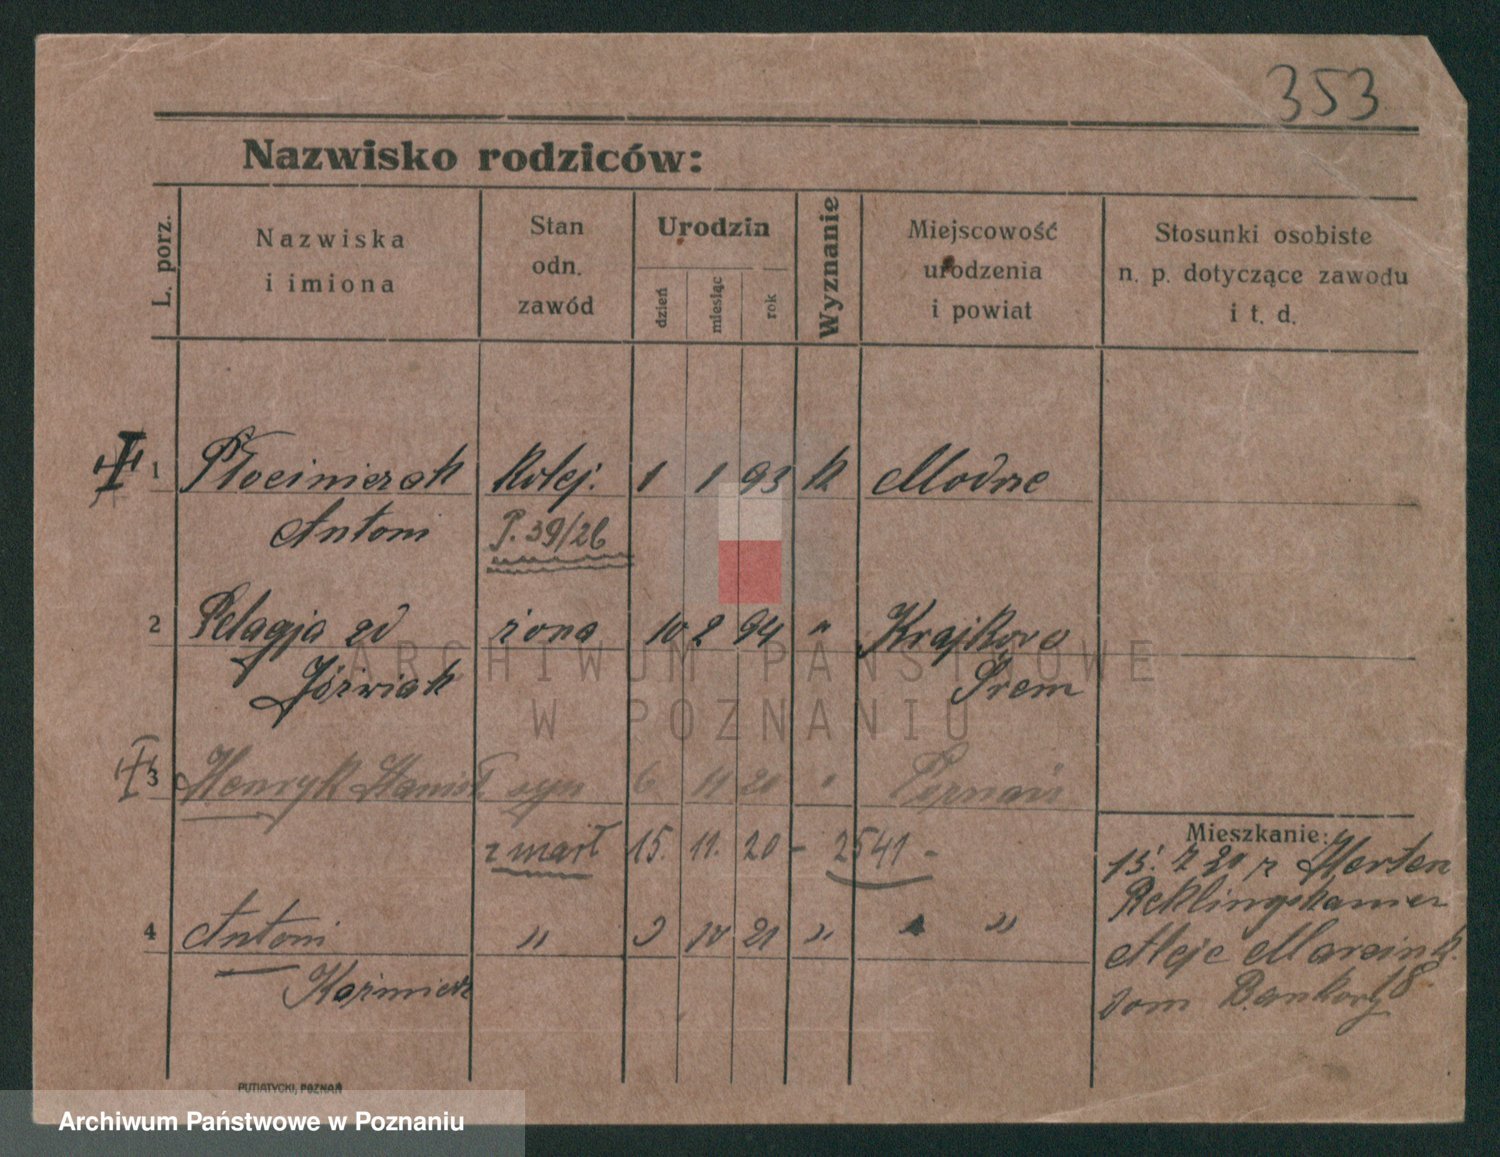 353
Nazwisko rodziców:
L. porz.
Nazwiska
i imiona
Stan
odn.
zawód
Urodzin
dzień
miesiąc
rok
Wyznanie
Miejscowość
urodzenia
i powiat
Stosunki osobiste
n. p. dotyczące zawodu
i t. d.
1 Płociniczak Kolej. 1 1 93 k Modrze
Antoni P. 39/26
2 Pelagja zd żona 10 2 94 " Krajkowo
Jóźwiak Śrem
3 Henryk Stanisł syn 6 11 20 " Poznań
zmarł 15. 11. 20 - 2541 -
Mieszkanie:
15. 7 20 z Herten
Reklingshausen
4 Antoni " 3 10 21 " " "
Kazmierz
Aleje Marcink.
dom Bankowy 18
PUTIATYCKI, POZNAŃ
ARCHIWUM PAŃSTWOWE
W POZNANIU
Archiwum Państwowe w Poznaniu